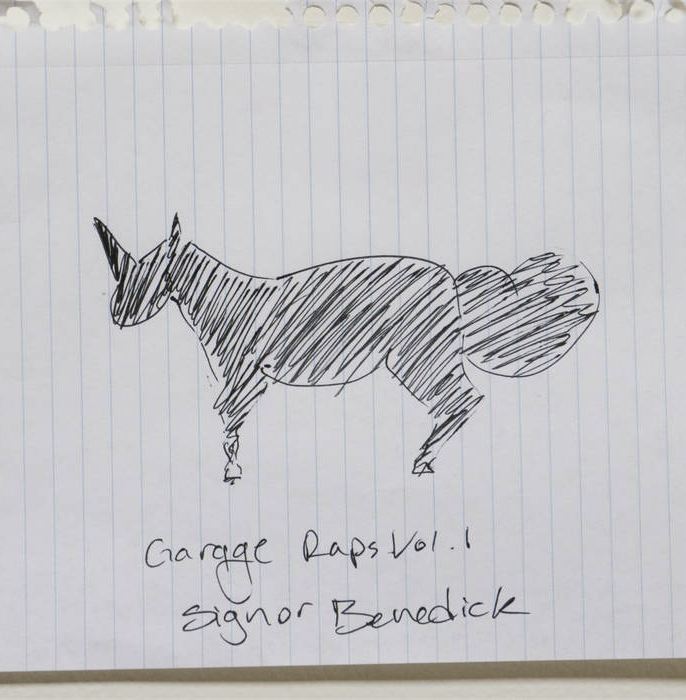 Garage Raps Vol. 1
Signor Benedick